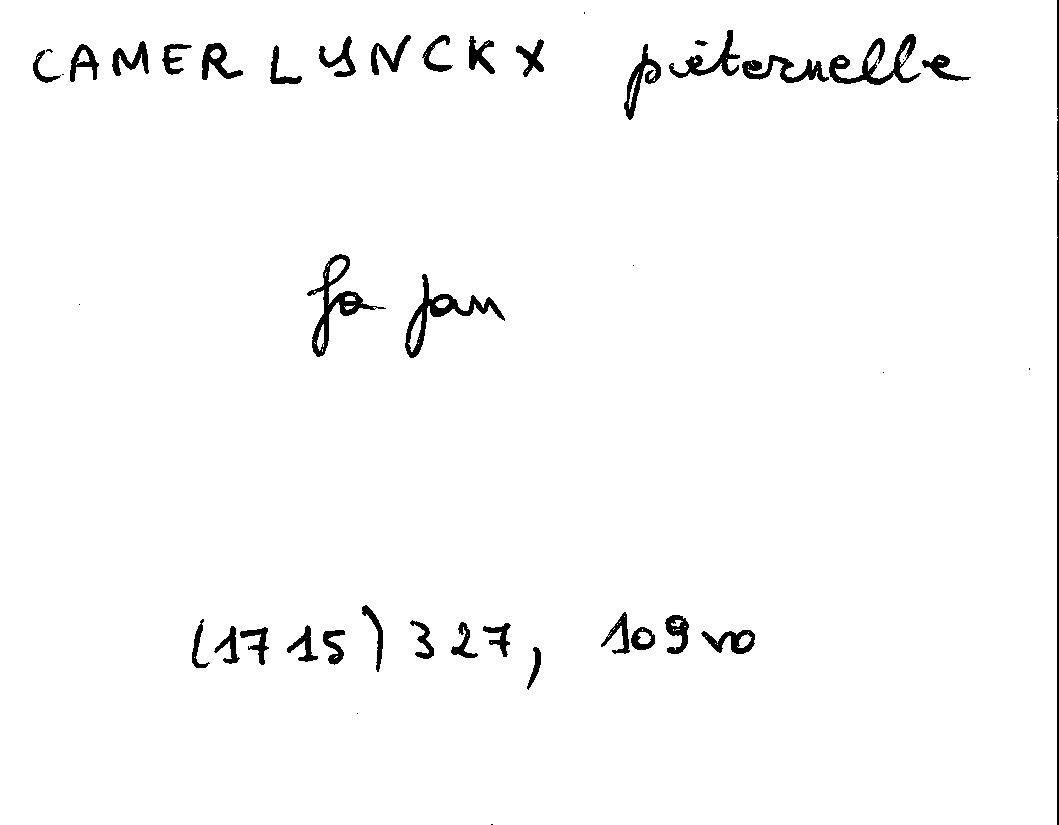 CAMERLYNCKX pieternelle
fa jan
(1715) 327, 109 vo